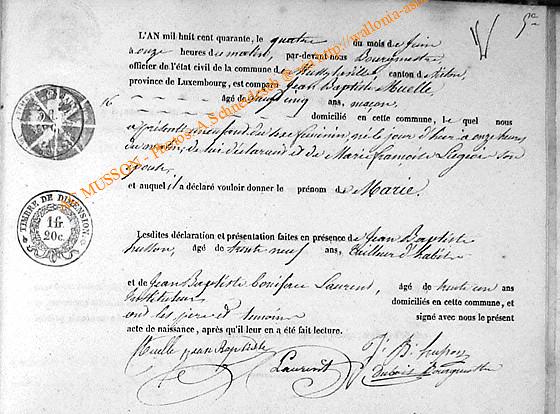 L'AN mil huit cent quarante, le quatre du mois de juin
à onze heures du matin, par-devant nous Bourgmestre
officier de l'état civil de la commune de canton de
province de Luxembourg, est comparu Jean Baptiste Ruelle
âgé de ans, maçon,
domicilié en cette commune, lequel nous
a présenté un enfant du sexe féminin, né le jour d'hier à onze heures
du matin, de lui déclarant et de Marie françoise son
épouse
et auquel il a déclaré vouloir donner le prénom de Marie.
Lesdites déclaration et présentation faites en présence de Jean Baptiste
husson, âgé de trente neuf ans, tailleur d'habits
et de Jean Baptiste Boniface Laurent, âgé de trente un ans
Instituteur domiciliés en cette commune, et
ont les père et témoins signé avec nous le présent
acte de naissance, après qu'il leur en a été fait lecture.
Ruelle jean Baptiste
Laurent
J. B. husson
Bourgmestre
TIMBRE DE DIMENSION.
1 fr.
20 c.
MUSSON - Photos: A Schneidesch @ http://wallonia-as